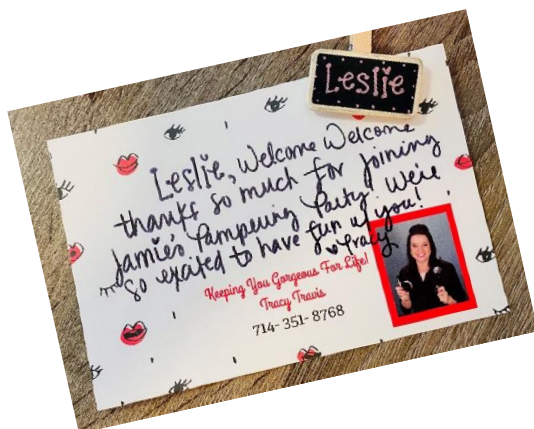 Leslie
Leslie, Welcome Welcome
thanks so much for joining
Jamie's Pampering Party! We're
so excited to have fun w/ you!
♥Tracy
Keeping You Gorgeous For Life!
Tracy Travis
714-351-8768